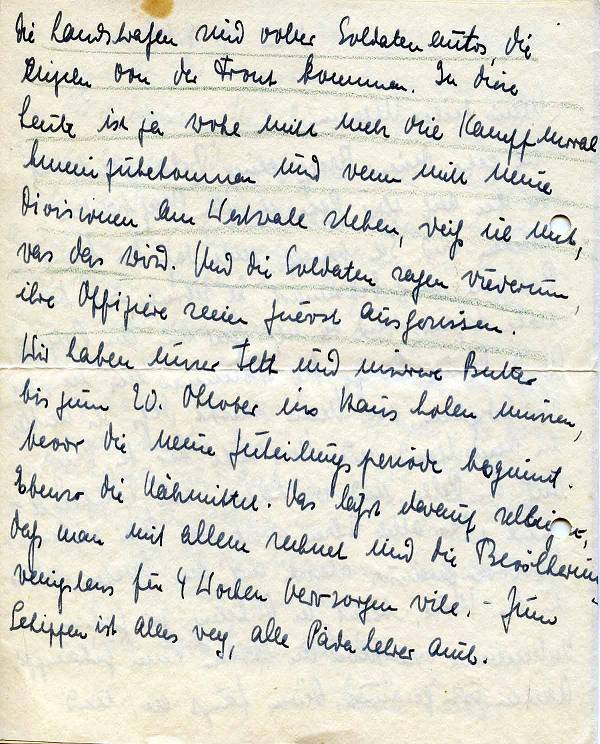 die Landstraßen sind voller Soldatenautos, die
von der Front kommen. In diese
Leute ist ja wohl nicht mehr die Kampfmoral
hineinzubekommen und wenn nicht neue
Divisionen am Westwalle stehen, weiß ich nicht,
was das wird. Und die Soldaten sagen wiederum,
ihre Offiziere seien zuerst ausgerissen.
Wir haben unser Fett und unsere Butter
bis zum 20. Oktober ins Haus holen müssen,
bevor die neue Zuteilungsperiode beginnt.
Ebenso die Nährmittel. Das läßt darauf
daß man mit allem rechnet und die Bevölkerung
wenigstens für 4 Wochen versorgen will. - Zum
Schippen ist alles weg, alle Päda Lehrer auch.